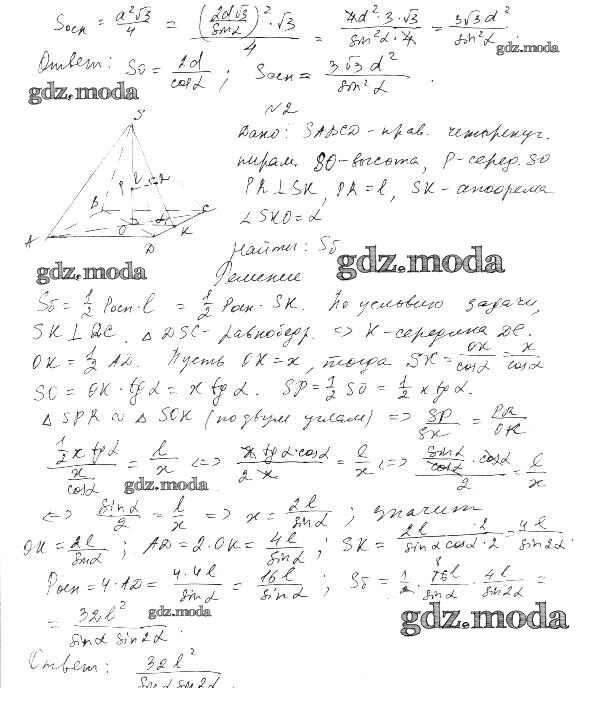 Sосн = a²√3/4 = (2d√3/sinα)²·√3/4 = 4d²·3·√3/sin²α·4 = 3√3d²/sin²α.
gdz.moda
Ответ: Sδ = 2d/cosα; Sосн = 3√3 d²/sin²α.
gdz.moda
N2
Дано: SABCD - прав. четырехуг.
пирам. SO-высота, P-серед. SO
PR⊥SK, PR=l, SK-апофема
∠SKO=α
Найти: Sδ
S
P
R
B
C
O
α
K
A
D
gdz.moda
gdz.moda
Решение
Sδ = 1/2 Pосн·l = 1/2 Pосн·SK. По условию задачи,
SK⊥DC. △DSC-равнобедр. => K-середина DC.
OK = 1/2 AD. Пусть OK=x, тогда SK = OK/cosα = x/cosα
SO = OK·tgα = x tgα. SP = 1/2 SO = 1/2 x tgα.
△SPR ∾ △SOK (по двум углам) => SP/SK = PR/OK
1/2 x tgα / x/cosα = l/x <=> x tgα·cosα/2x = l/x <=> sinα/cosα·cosα/2 = l/x
gdz.moda
<=> sinα/2 = l/x => x = 2l/sinα; значит
OK = 2l/sinα; AD = 2·OK = 4l/sinα; SK = 2l·2/sinα cosα·2 = 4l/sin2α.
Pосн = 4·AD = 4·4l/sinα = 16l/sinα; Sδ = 1/2·16l/sinα·4l/sin2α =
= 32l²/sinα sin2α.
gdz.moda
gdz.moda
Ответ: 32l²/sinα sin2α.